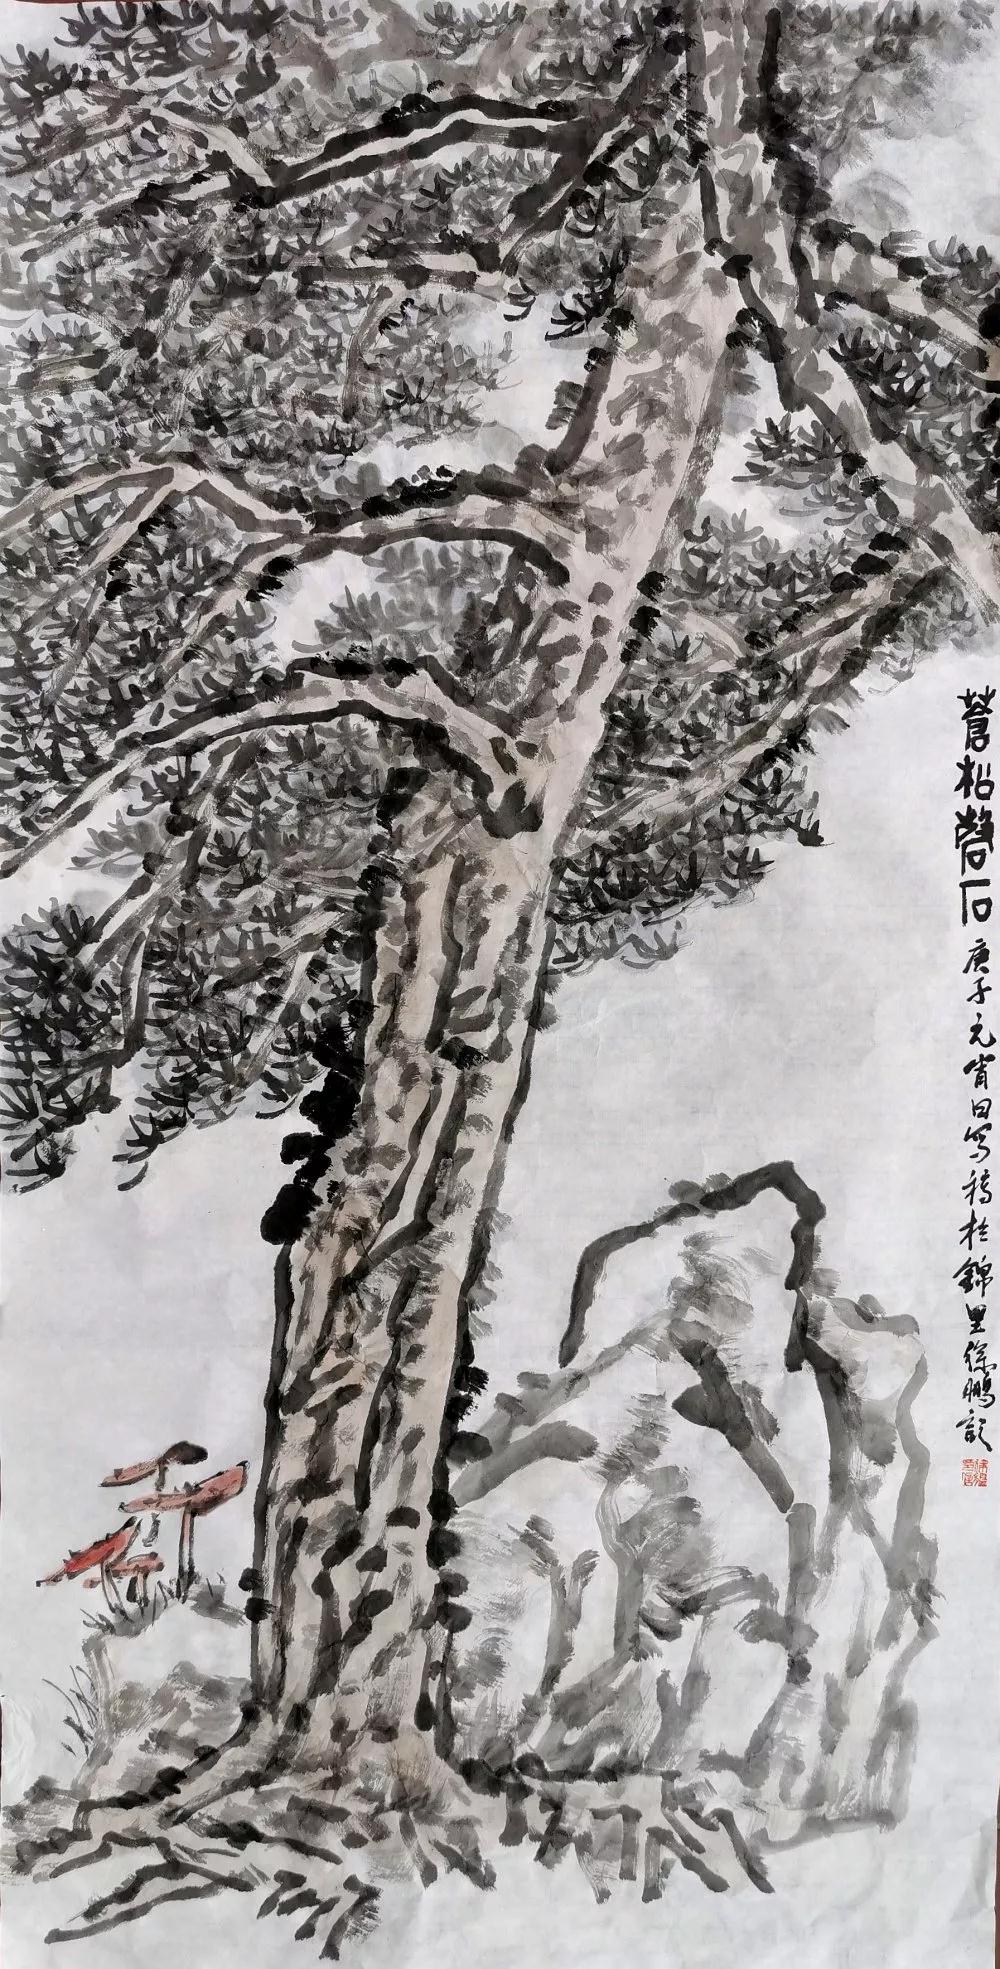 蒼松磐石 庚子元宵日写稿於錦里徐鵬歆